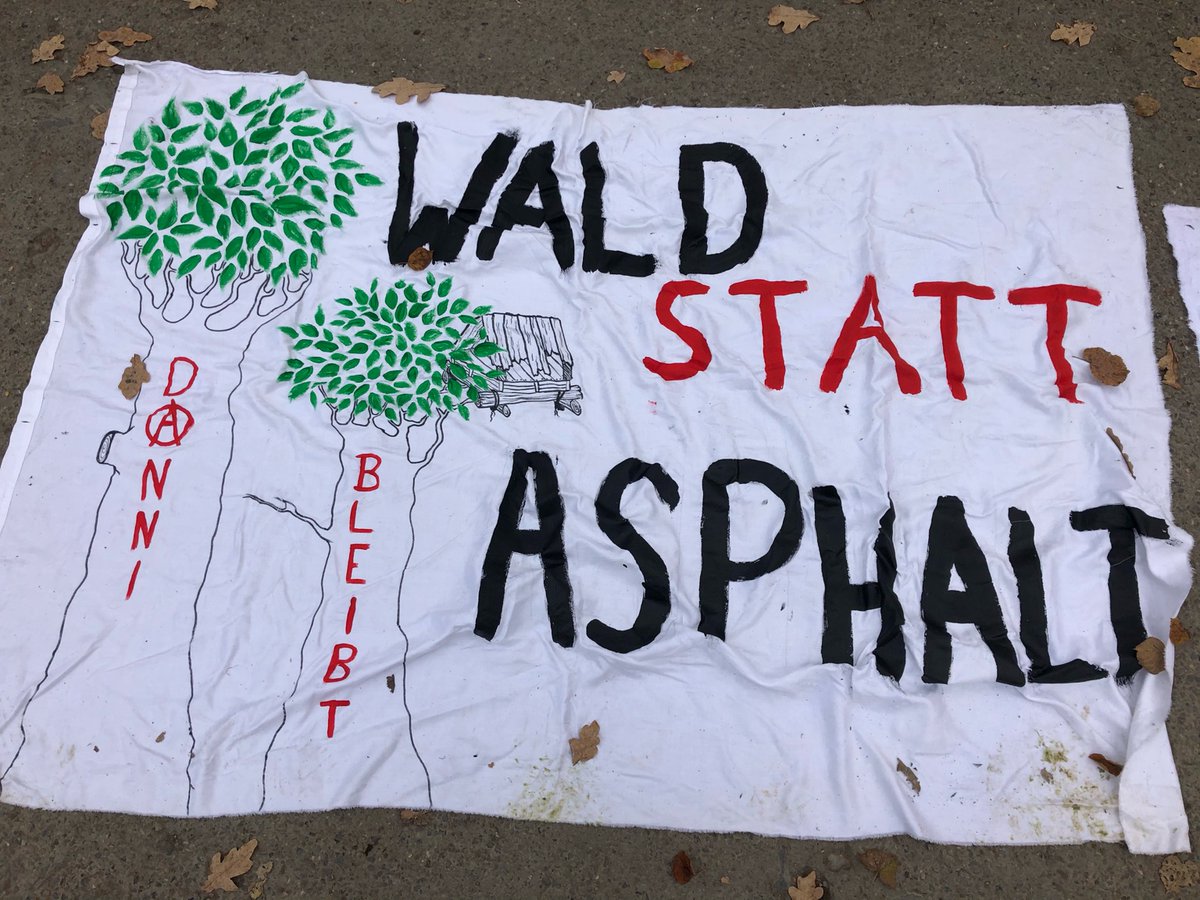 WALD
STATT
ASPHALT
DANNI
BLEIBT